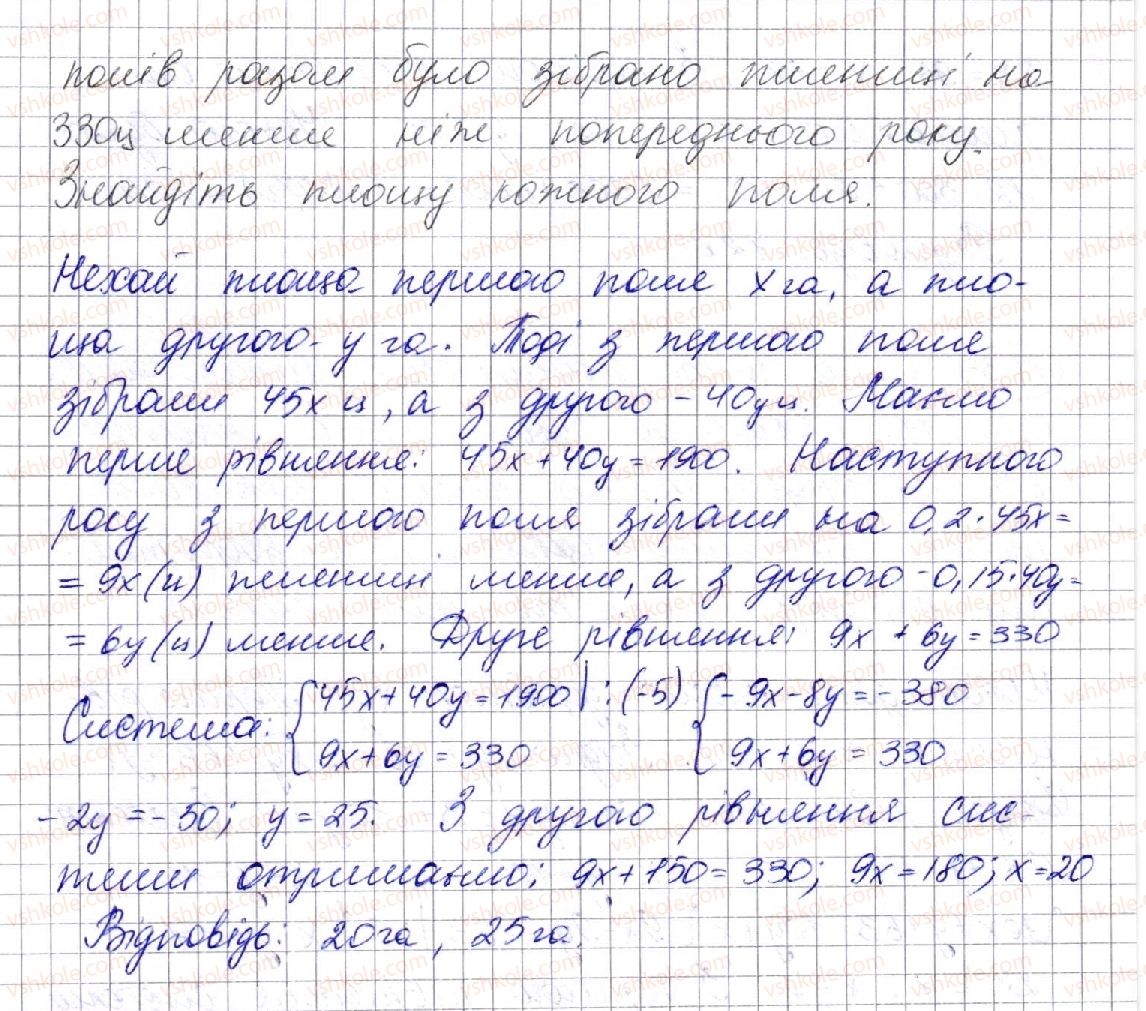 полів разом було зібрано пшениці на
330ц менше ніж попереднього року.
Знайдіть площу кожного поля.
Нехай площа першого поля x га, а пло-
ща другого - y га. Тоді з першого поля
зібрали 45x ц, а з другого - 40y ц. Маємо
перше рівняння: 45x + 40y = 1900. Наступного
року з першого поля зібрали на 0,2 · 45x =
= 9x (ц) пшениці менше, а з другого - 0,15 · 40y =
= 6y (ц) менше. Друге рівняння: 9x + 6y = 330
Система: { 45x + 40y = 1900 | : (-5) { -9x - 8y = -380
9x + 6y = 330 9x + 6y = 330
-2y = -50; y = 25. З другого рівняння сис-
теми отримаємо: 9x + 150 = 330; 9x = 180; x = 20
Відповідь: 20га, 25га.
vshkole.com